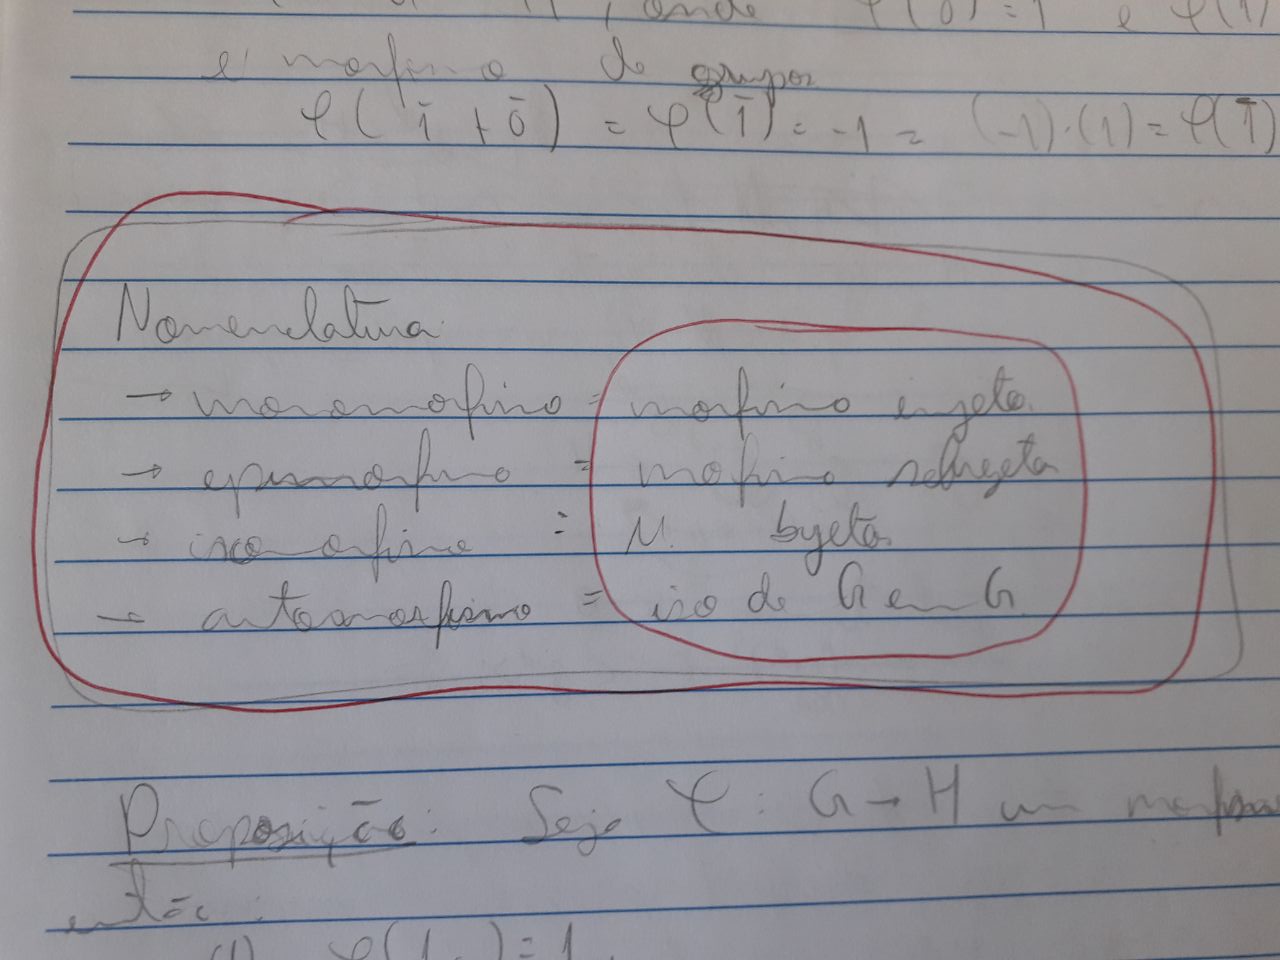 , onde φ(0̄) = 1 e φ(1̄)
é morfismo de grupos
φ(1̄ + 0̄) = φ(1̄) = -1 = (-1)·(1) = φ(1̄)
Nomenclatura:
→ monomorfismo = morfismo injetor
→ epimorfismo = morfismo sobrejetor
→ isomorfismo = M. bijetor
→ automorfismo = iso de G em G
Proposição: Seja φ: G → H um morfismo
então:
(1) φ(1 ) = 1